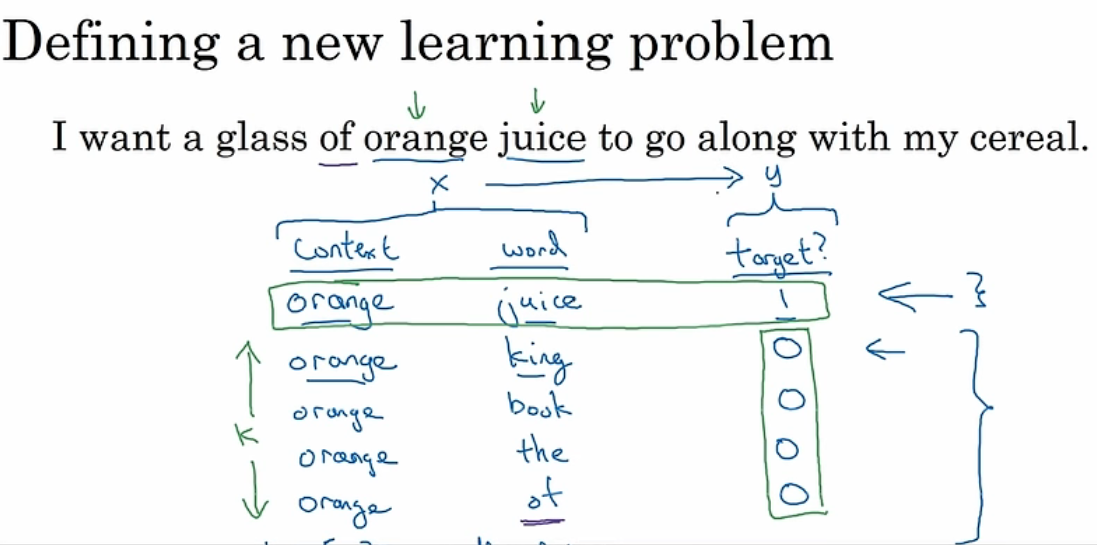 Defining a new learning problem
I want a glass of orange juice to go along with my cereal.
x y
context word target?
orange juice 1
orange king 0
orange book 0
k
orange the 0
orange of 0